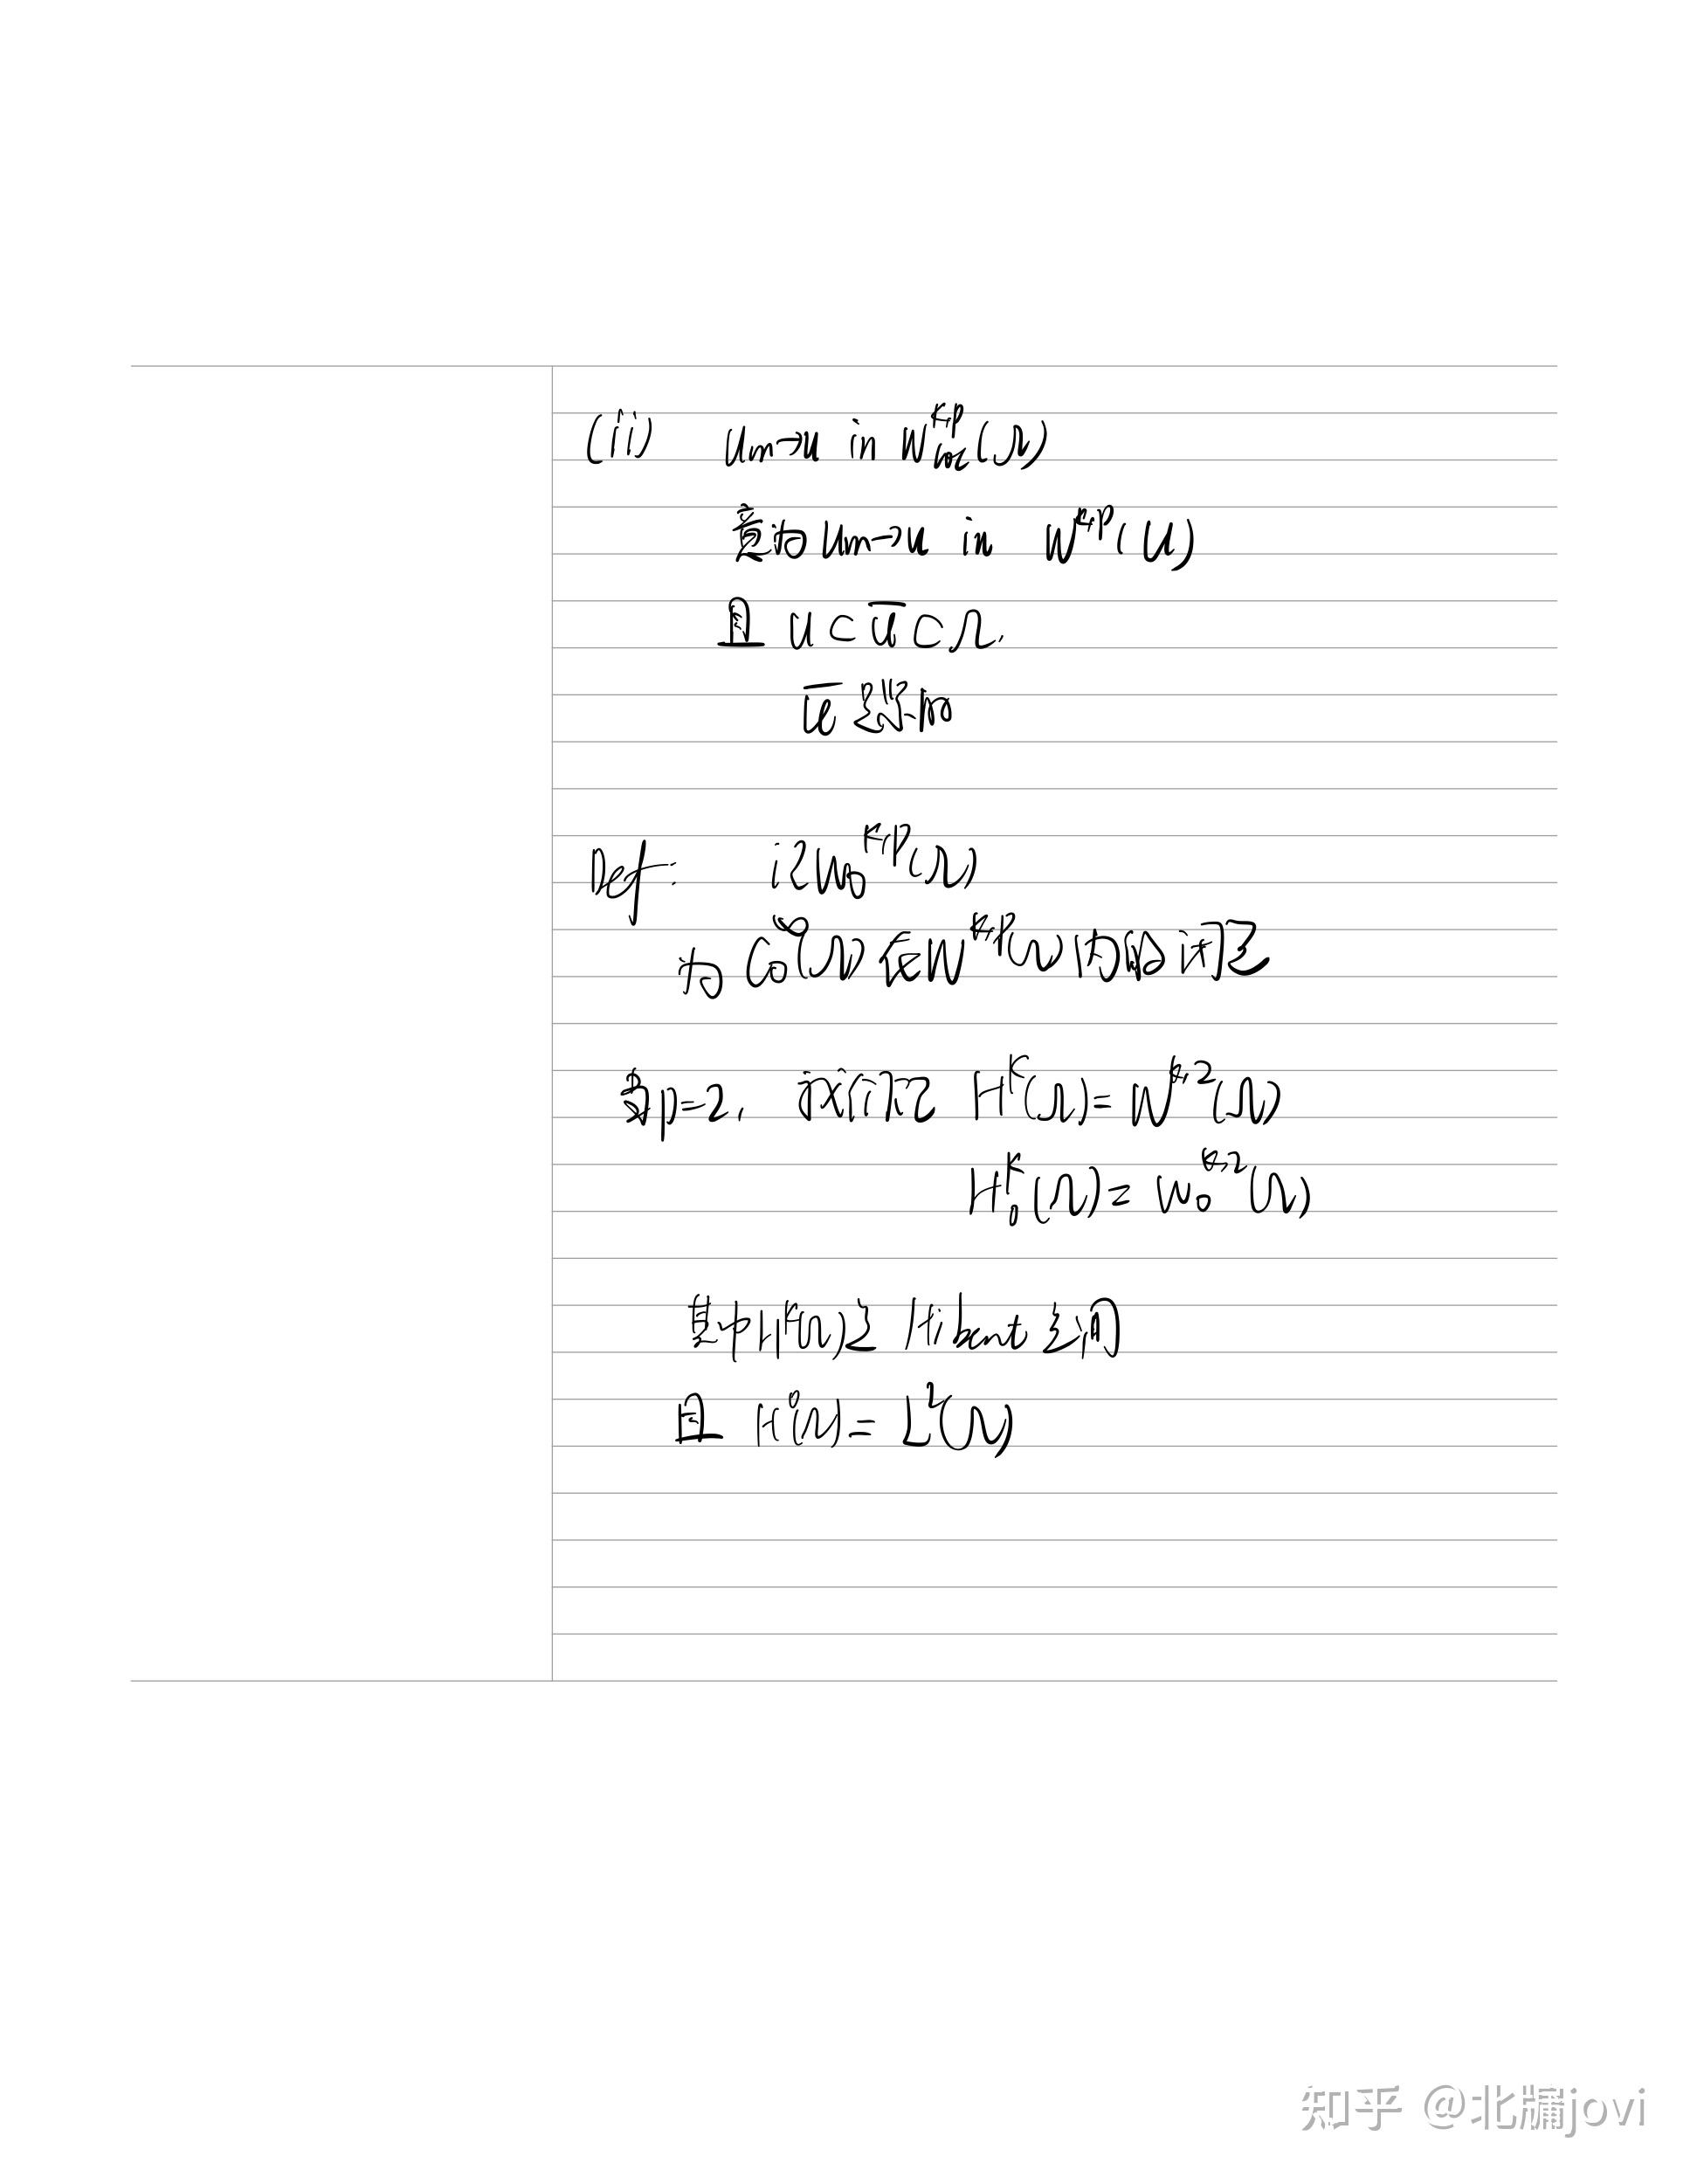 (ii) Um→u in W^{k,p}_{loc}(Ω)
意为 Um→u in W^{k,p}(U)
且 U⊂Ū⊂Ω.
Ū是紧的
Def: 记W₀^{k,p}(Ω)
为C₀^∞(Ω)在W^{k,p}(Ω)内的闭包
当p=2, 我们记 H^k(Ω)=W^{k,2}(Ω)
H₀^k(Ω)=W₀^{k,2}(Ω)
其中H^k(Ω)是 Hilbert 空间
且 H⁰(Ω)=L²(Ω)
知乎 @北牗jovi